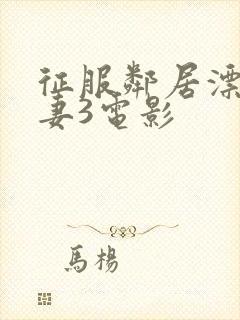 征服鄰居漂
妻3電影
馬楊